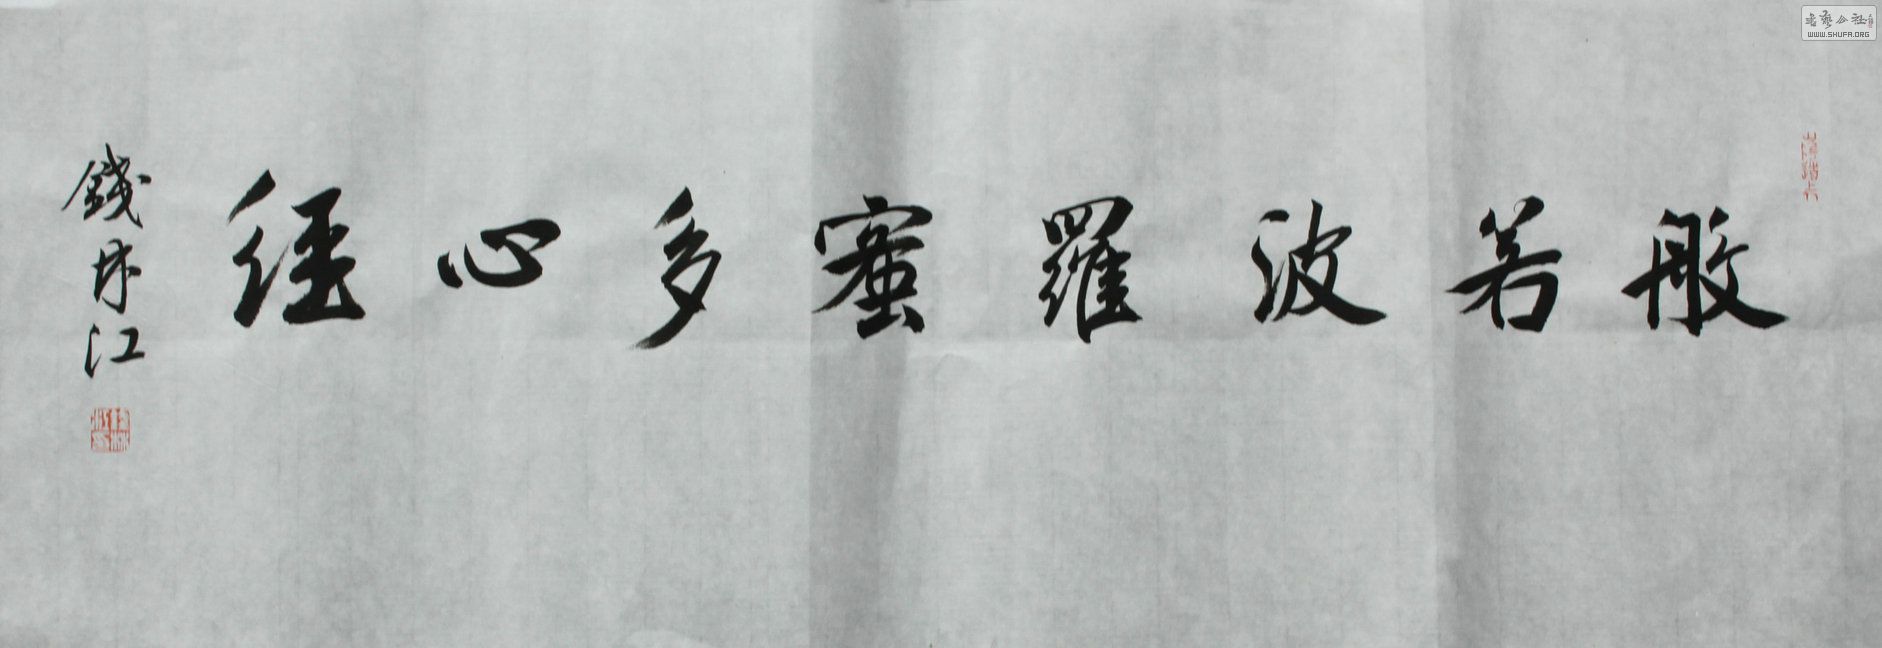 般若波羅蜜多心經
錢林江
書藝公社
WWW.SHUFA.ORG